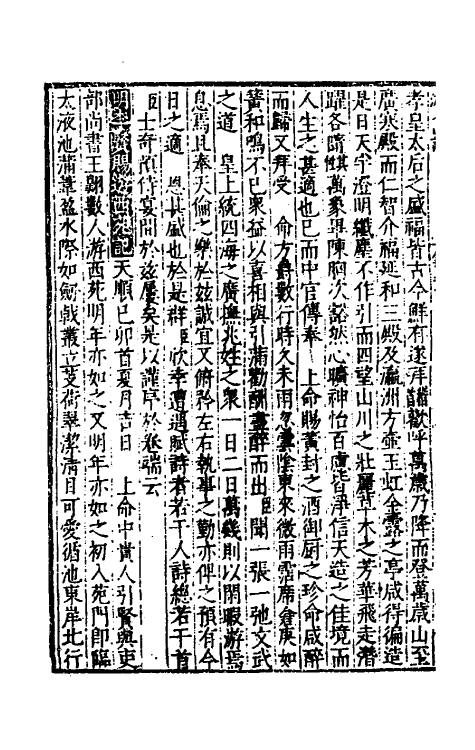 孝皇太后之盛福皆古今鮮有遂拜謝歡呼萬歲乃降而登萬歲山至
廣寒殿而仁智介福延和三殿及瀛洲方壺玉虹金露之亭咸得徧造
是日天宇澄明纖塵不作引而四望山川之壯麗草木之芳華飛走潛
躍各隨其萬象畢陳胸次豁然心曠神怡百慮皆淨信天造之佳境而
人生之甚適也已而中官傳奉 上命賜黃封之酒御厨之珍命咸醉
而歸又拜受 命方爵數行時久未雨忽雲陰東來微雨霑席倉庚如
簧和鳴不已衆益以喜相與引滿勸酬盡醉而出臣聞一張一弛文武
之道 皇上統四海之廣撫兆姓之衆一日二日萬幾則以閑暇游焉
息焉且奉天倫之樂於兹誠宜又俯矜左右執事之勤亦俾之預有今
日之適 恩甚盛也於是群臣欣幸遭遇賦詩者若干人詩總若干首
臣士奇預侍宴閒於兹屢矣是以謹序於卷端云
明李賢賜游西苑記天順己卯首夏月吉日 上命中貴人引賢與吏
部尚書王翺數人游西苑明年亦如之又明年亦如之初入苑門即臨
太液池蒲葦盈水際如劍戟叢立芰荷翠潔清目可愛循池東岸北行